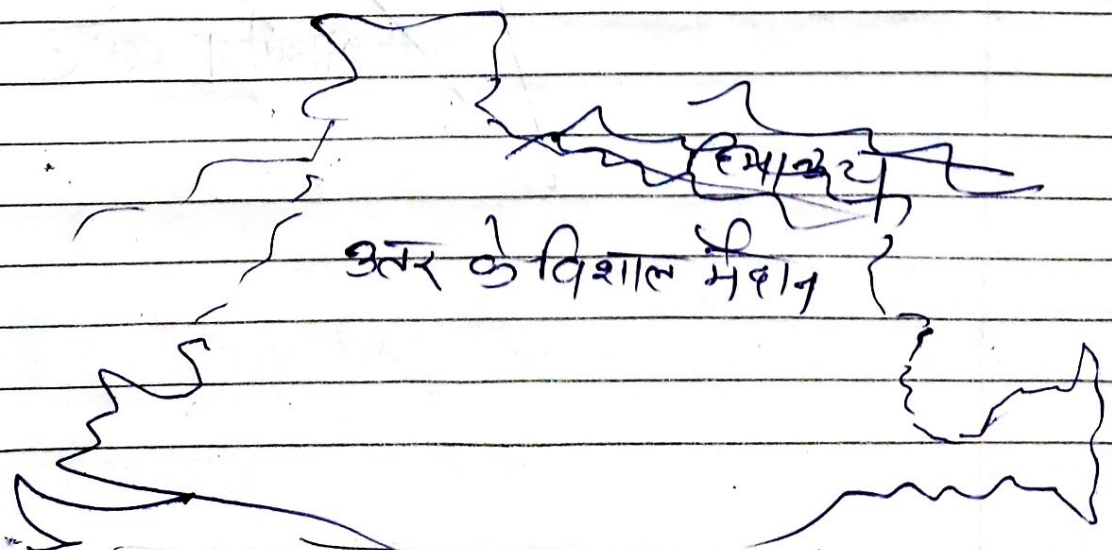 हिमालय
उतर के विशाल मैदान